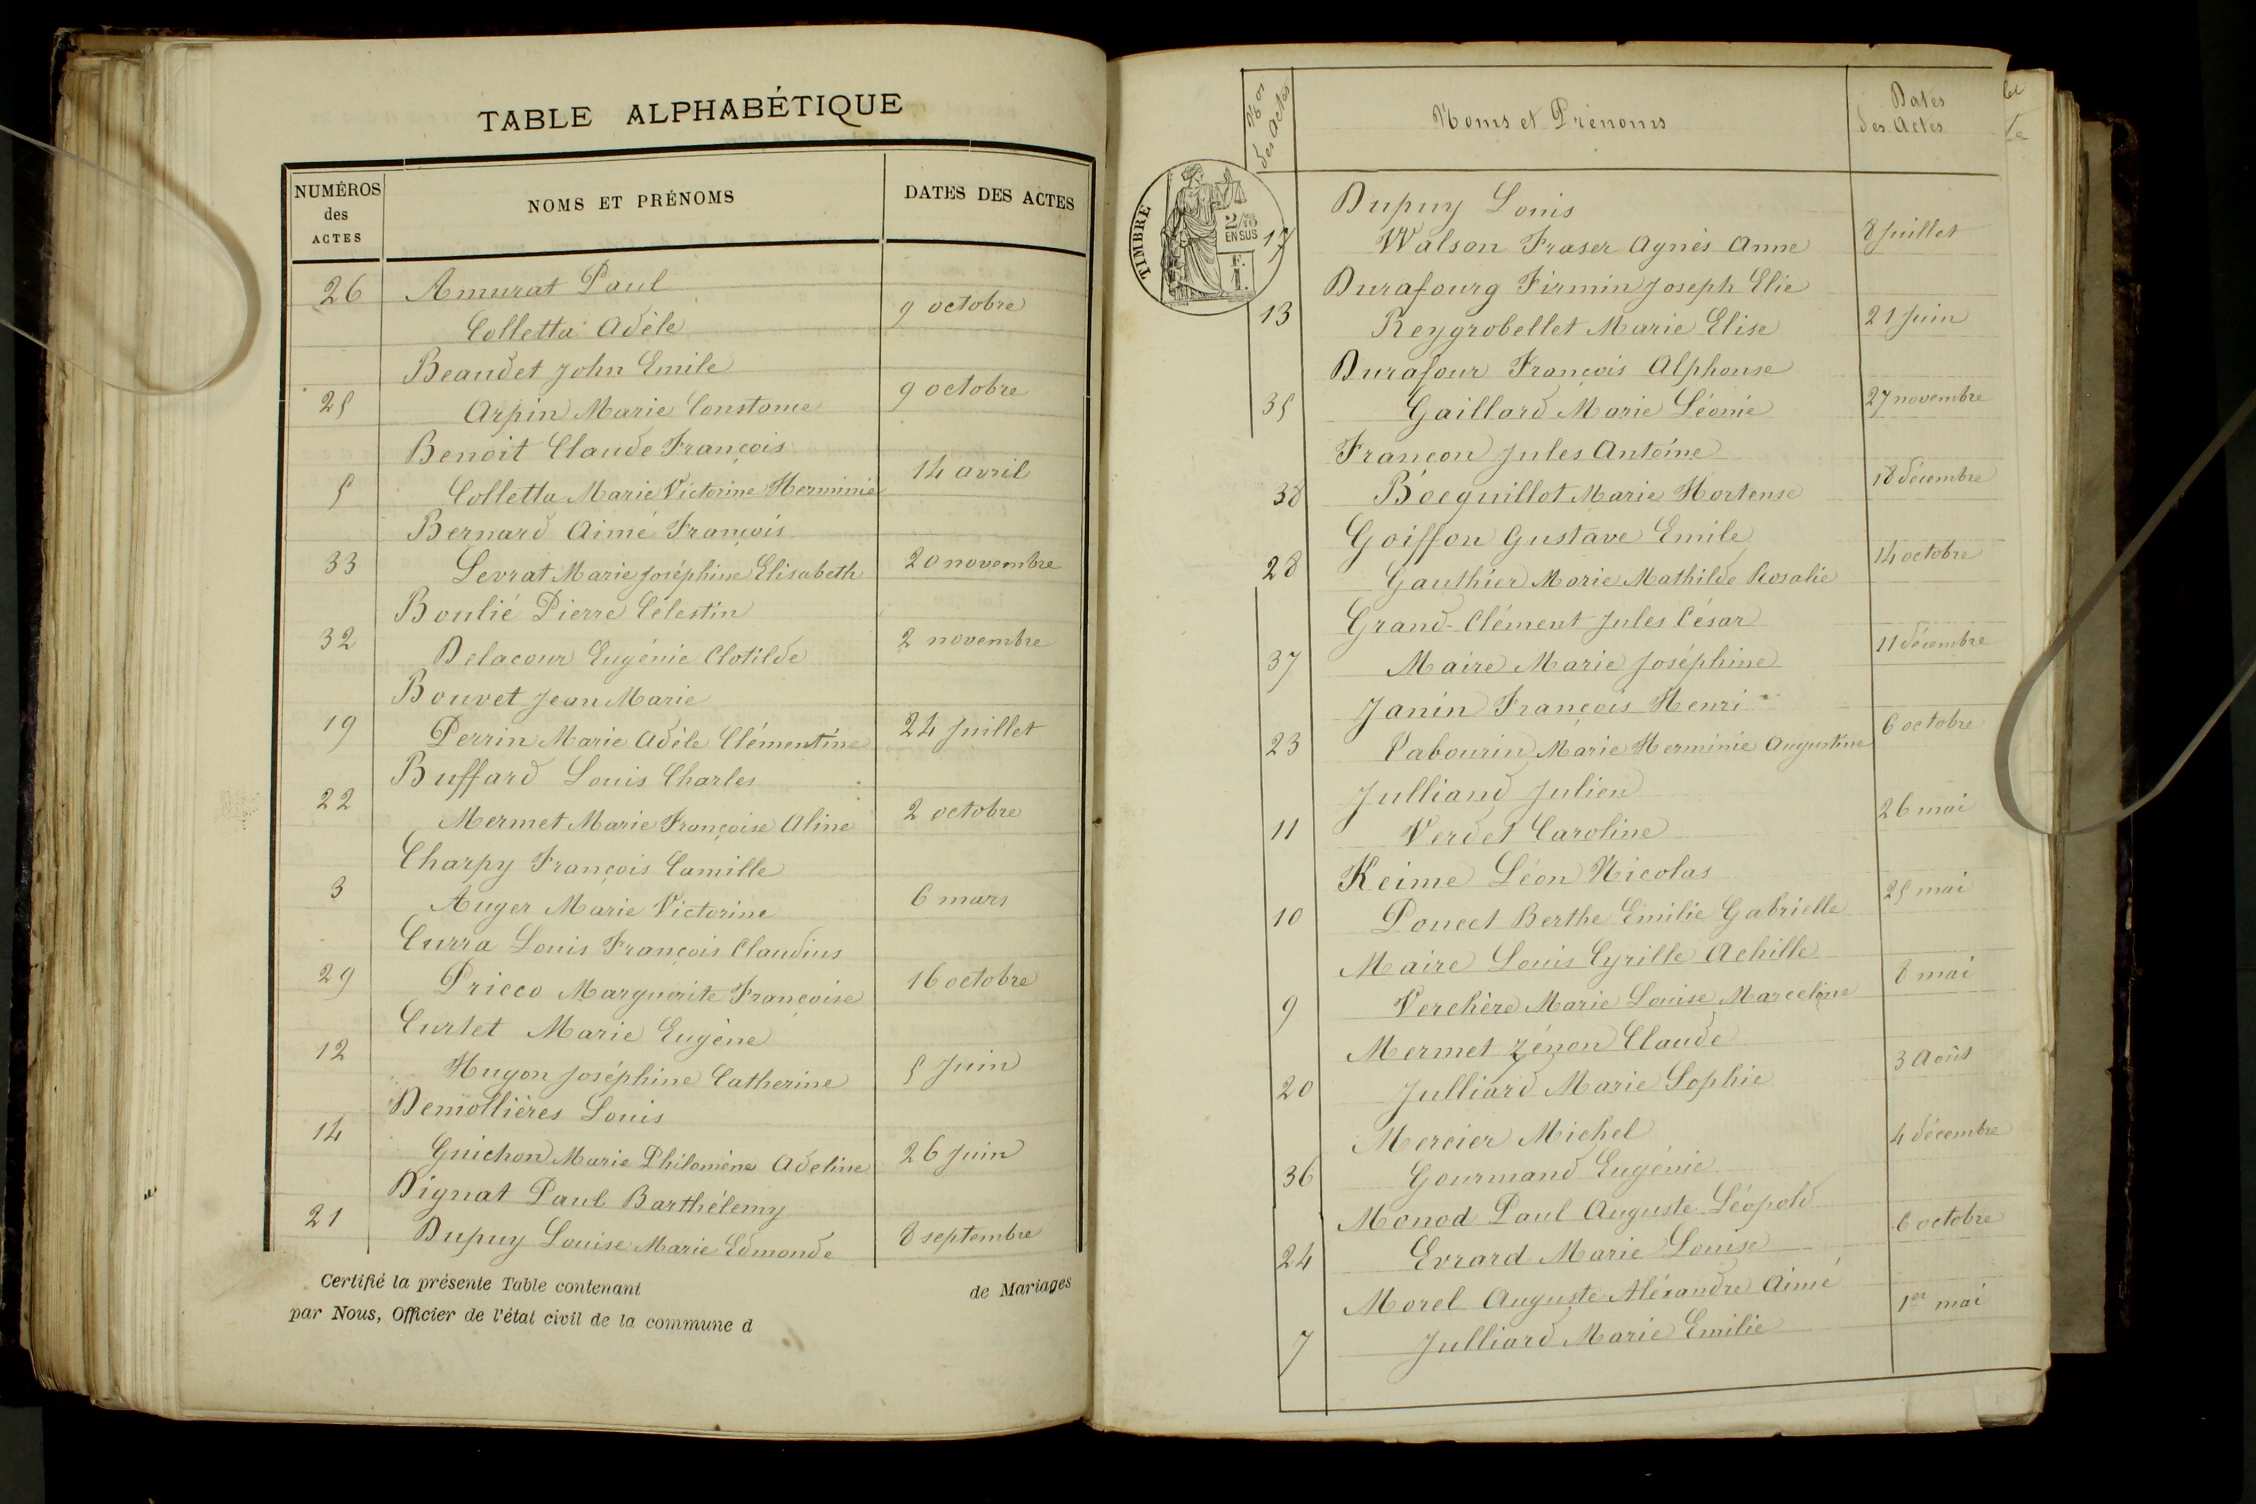 TABLE ALPHABÉTIQUE
NUMÉROS des ACTES NOMS ET PRÉNOMS DATES DES ACTES
26 Amurat Paul
Colletta Adèle 9 octobre
Beaudet John Emile
25 Arpin Marie Constance 9 octobre
Benoit Claude François
5 Colletta Marie Victorine Herminie 14 avril
Bernard Aimé François
33 Levrat Marie Joséphine Elisabeth 20 novembre
Boulié Pierre Célestin
32 Delacour Eugénie Clotilde 2 novembre
Bouvet Jean Marie
19 Perrin Marie Adèle Clémentine 24 Juillet
Buffard Louis Charles
22 Mermet Marie Françoise Aline 2 octobre
Charpy François Camille
3 Auger Marie Victorine 6 mars
Curra Louis François Claudius
29 Pricco Marguerite Françoise 16 octobre
Curtet Marie Eugène
12 Hugon Joséphine Catherine 5 Juin
Demollières Louis
14 Guichon Marie Philomène Adeline 26 Juin
Dignat Paul Barthélemy
21 Dupuy Louise Marie Edmonde 8 septembre
Certifié la présente Table contenant de Mariages
par Nous, Officier de l'état civil de la commune d
Nos des Actes Noms et Prénoms Dates des Actes
TIMBRE
2/10 EN SUS
F. 1.
Dupuy Louis
17 Walson Fraser Agnès Anne 8 Juillet
Durafourg Firmin Joseph Elie
13 Reygrobellet Marie Elise 21 Juin
Durafour François Alphonse
35 Gaillard Marie Léonie 27 novembre
Françon Jules Antoine
38 Bocquillot Marie Hortense 18 décembre
Goiffon Gustave Emile
28 Gauthier Marie Mathilde Rosalie 14 octobre
Grand-Clément Jules César
37 Maire Marie Joséphine 11 décembre
Janin François Henri
23 Vabourin Marie Herminie Augustine 6 octobre
Julliand Julien
11 Verdet Caroline 26 mai
Keime Léon Nicolas
10 Poncet Berthe Emilie Gabrielle 25 mai
Maire Louis Cyrille Achille
9 Verchère Marie Louise Marceline 8 mai
Mermet Zénon Claude
20 Julliard Marie Sophie 3 Août
Mercier Michel
36 Gourmand Eugénie 4 décembre
Monod Paul Auguste Léopold
24 Evrard Marie Louise 6 octobre
Morel Auguste Aléxandre Aimé
7 Julliard Marie Emilie 1er mai